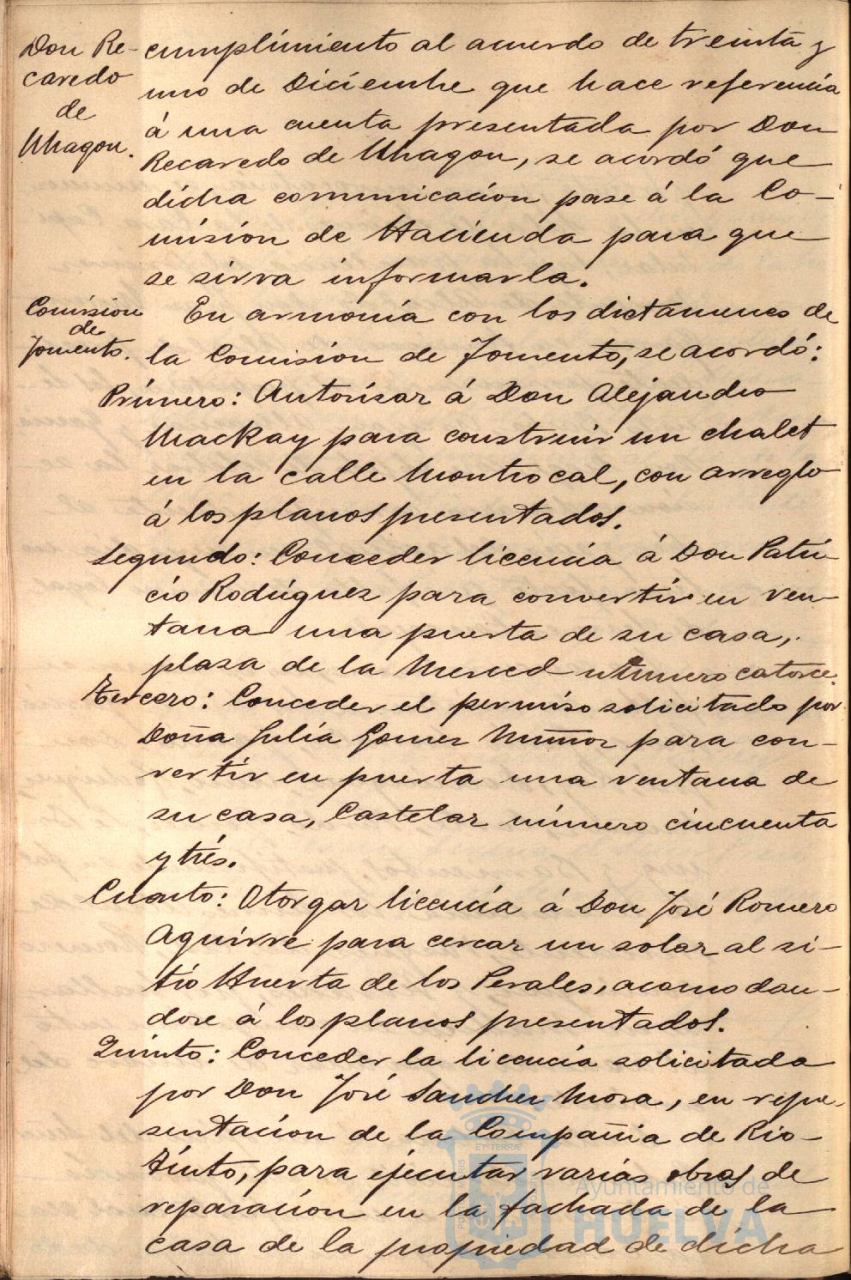 Don Re-
caredo
de
Uhagon.
cumplimiento al acuerdo de treinta y
uno de Diciembre que hace referencia
á una cuenta presentada por Don
Recaredo de Uhagon, se acordó que
dicha comunicación pase á la Co-
misión de Hacienda para que
se sirva informarla.
Comision
de
Fomento.
En armonía con los dictamenes de
la Comisión de Fomento, se acordó:
Primero: Autorisar á Don Alejandro
Mackay para construir un chalet
en la calle Montrocal, con arreglo
á los planos presentados.
Segundo: Conceder licencia á Don Patri-
cio Rodríguez para convertir en ven-
tana una puerta de su casa,
plasa de la Merced número catorce.
Tercero: Conceder el permiso solicitado por
Doña Julia Gomez Muñoz para con-
vertir en puerta una ventana de
su casa, Castelar número cincuenta
y trés.
Cuarto: Otorgar licencia á Don José Romero
Aguirre para cercar un solar al si-
tio Huerta de los Perales, acomodan-
dose á los planos presentados.
Quinto: Conceder la licencia solicitada
por Don José Sanchez Mora, en repre-
sentación de la Compañia de Rio-
Tinto, para ejecutar varias obras de
reparación en la fachada de la
casa de la propiedad de dicha
Ayuntamiento de
HUELVA